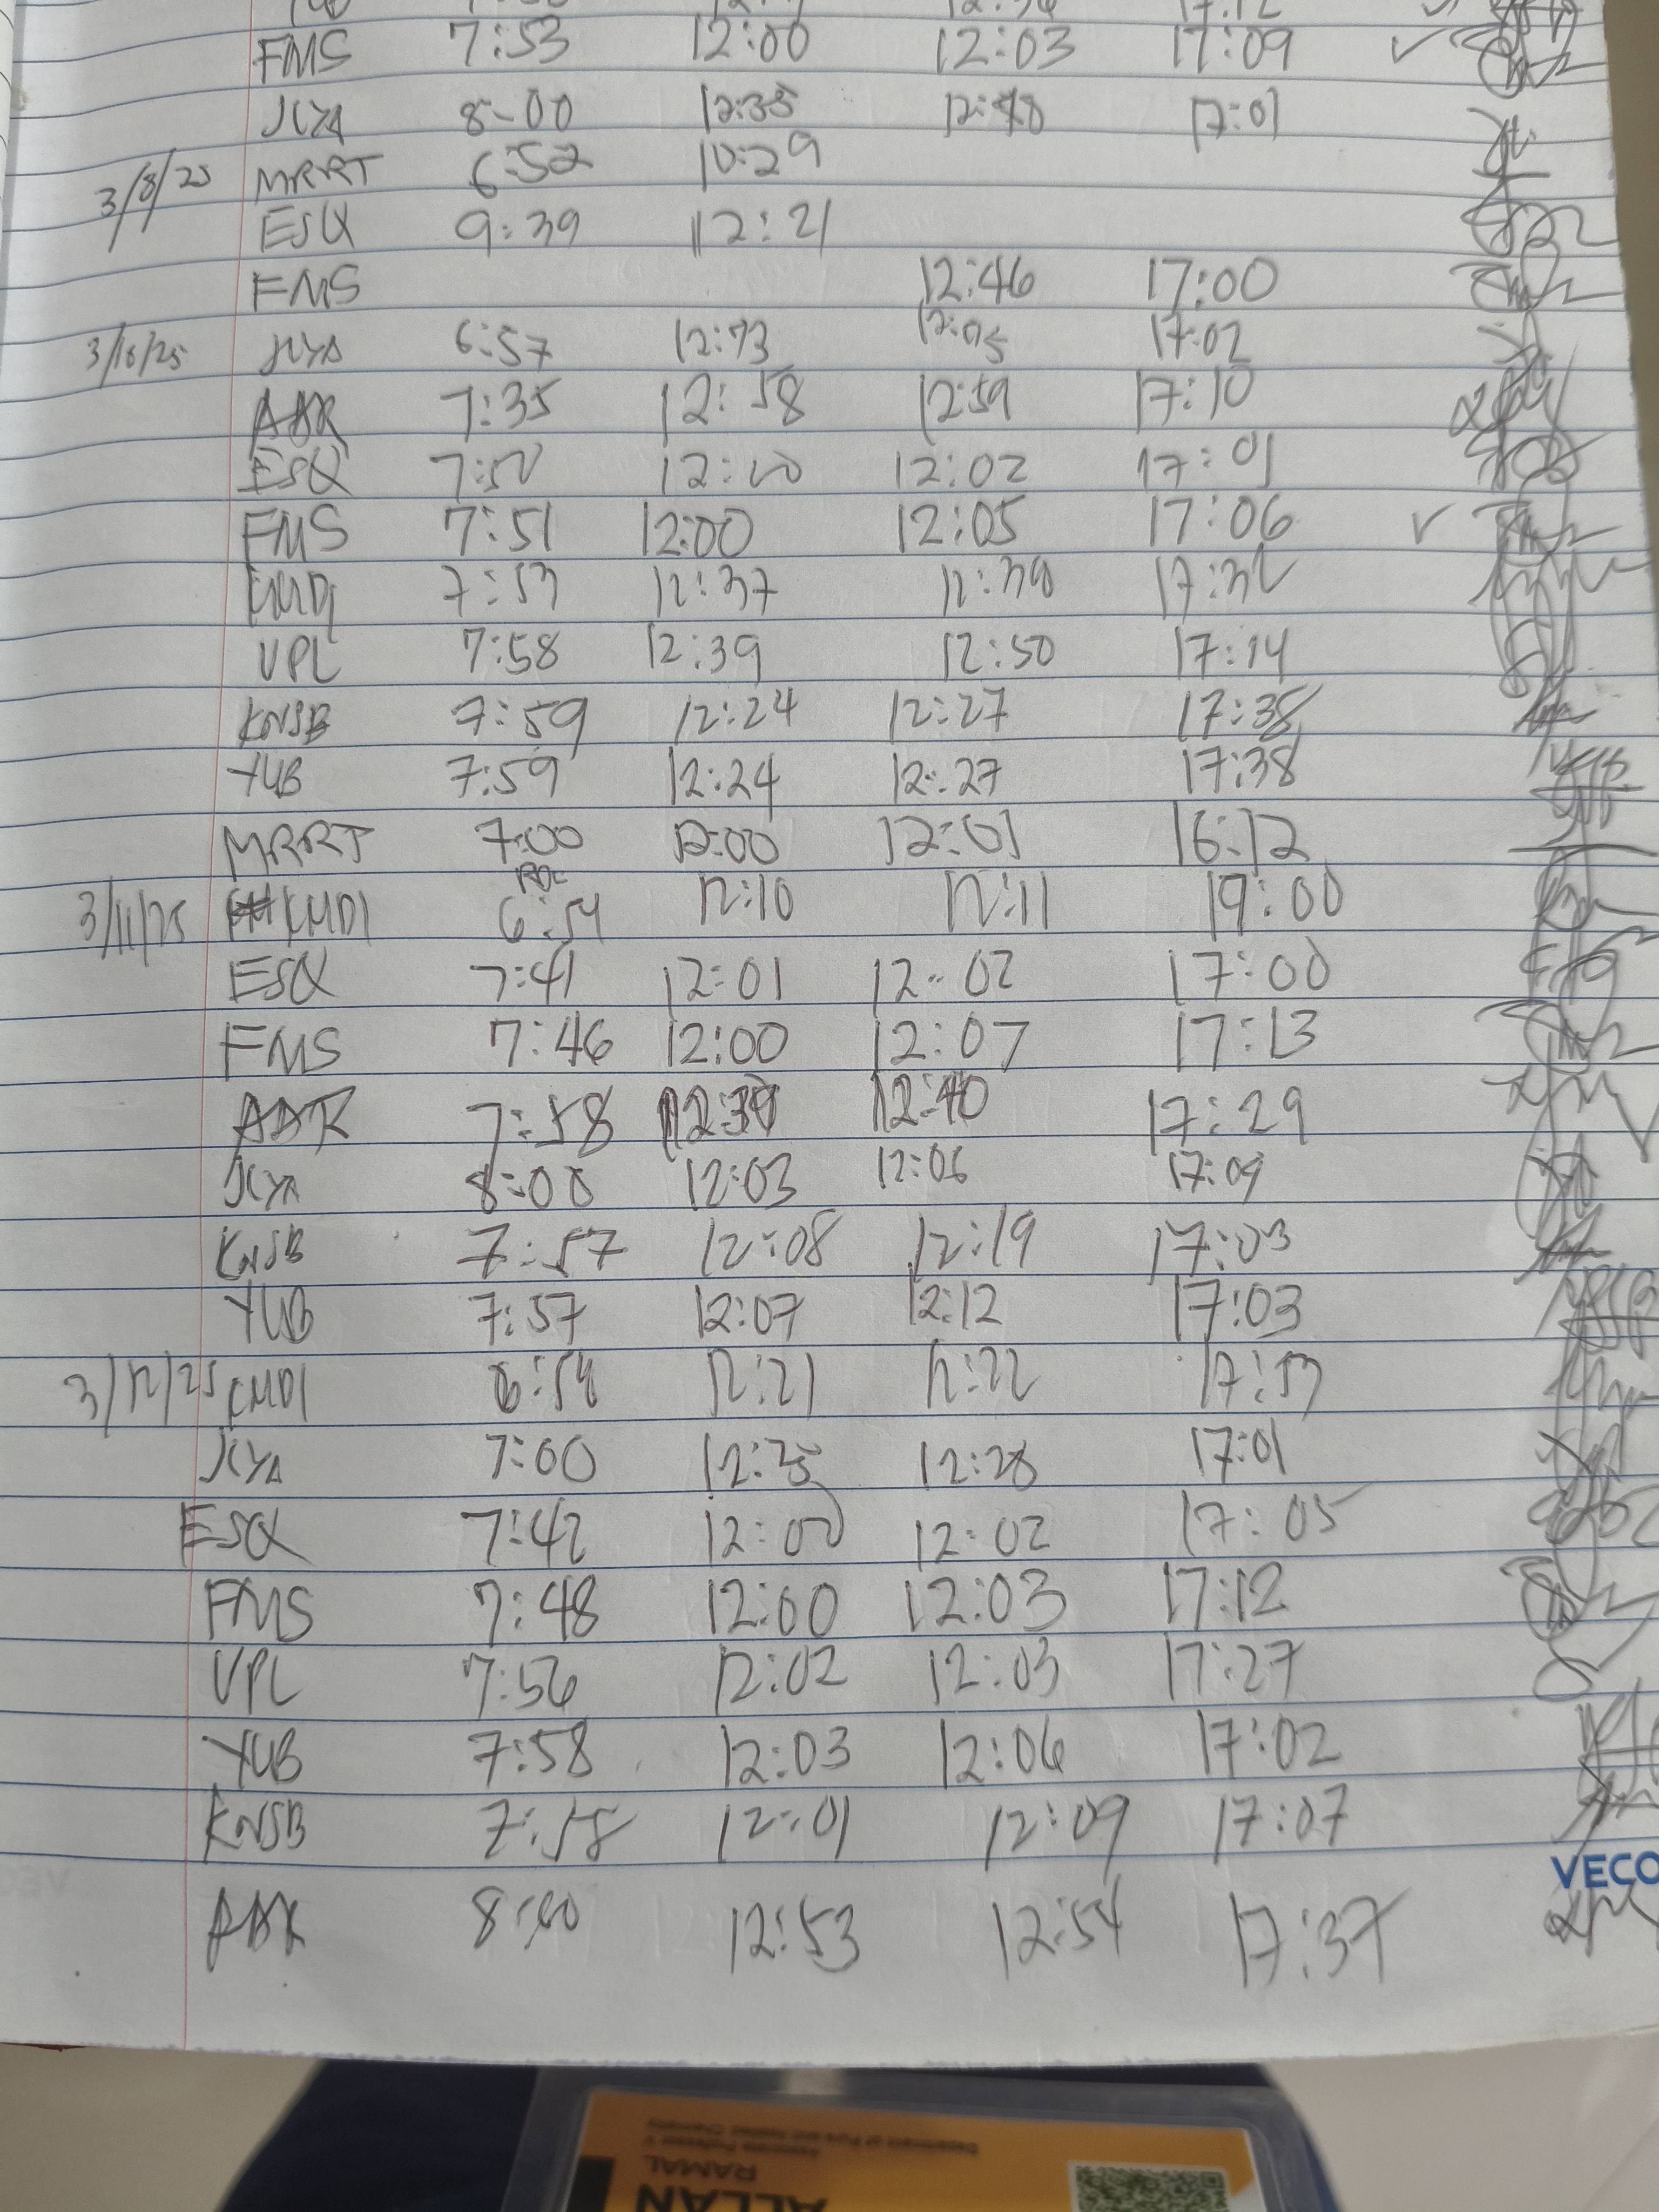 17:12
FMS 7:53 12:00 12:03 17:09 ✓
JCYA 8:00 12:35 12:48 17:01
3/8/25 MRRT 6:52 10:29
ESQ 9:39 12:21
FMS 12:46 17:00
3/10/25 JCYA 6:57 17:02
ABR 7:35 12:58 12:59 17:10
ESQ 12:00 12:02 17:01
FMS 7:51 12:00 12:05 17:06 ✓
KMDJ 7:53 12:37 12:38 17:32
VPL 7:58 12:39 12:50 17:14
KNSB 7:59 12:24 12:27 17:38
YUB 7:59 12:24 12:27 17:38
MRRT 7:00 12:00 12:01 16:12
3/11/25 KMDJ 6:54 12:10 12:11 19:00
ESQ 7:41 12:01 12:02 17:00
FMS 7:46 12:00 12:07 17:13
ABR 7:58 12:39 12:40 17:29
JCYA 8:00 12:03 12:06 17:09
KNSB 7:57 12:08 12:19 17:03
YUB 7:57 12:07 12:12 17:03
3/12/25 KMDJ 6:54 12:21 12:22 17:53
JCYA 7:00 12:25 12:28 17:01
ESQ 7:42 12:00 12:02 17:05
FMS 7:48 12:00 12:03 17:12
VPL 7:56 12:02 12:03 17:27
YUB 7:58 12:03 12:06 17:02
KNSB 7:58 12:01 12:09 17:07
VECO
ABR 8:00 12:53 12:54 17:37
Department of Pure and Applied Chemistry
Associate Professor V
RAMAL
ALLAN